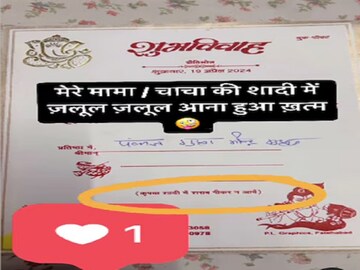 शुभविवाह
प्रीतिभोज
शुक्रवार, 19 अप्रैल 2024
मेरे मामा / चाचा की शादी में
ज़लूल ज़लूल आना हुआ ख़त्म
प्रतिष्ठा में
श्रीमान्
(कृपया शादी में शराब पीकर न आयें)
3058
0978
P.L. Graphics, Faizabad
1